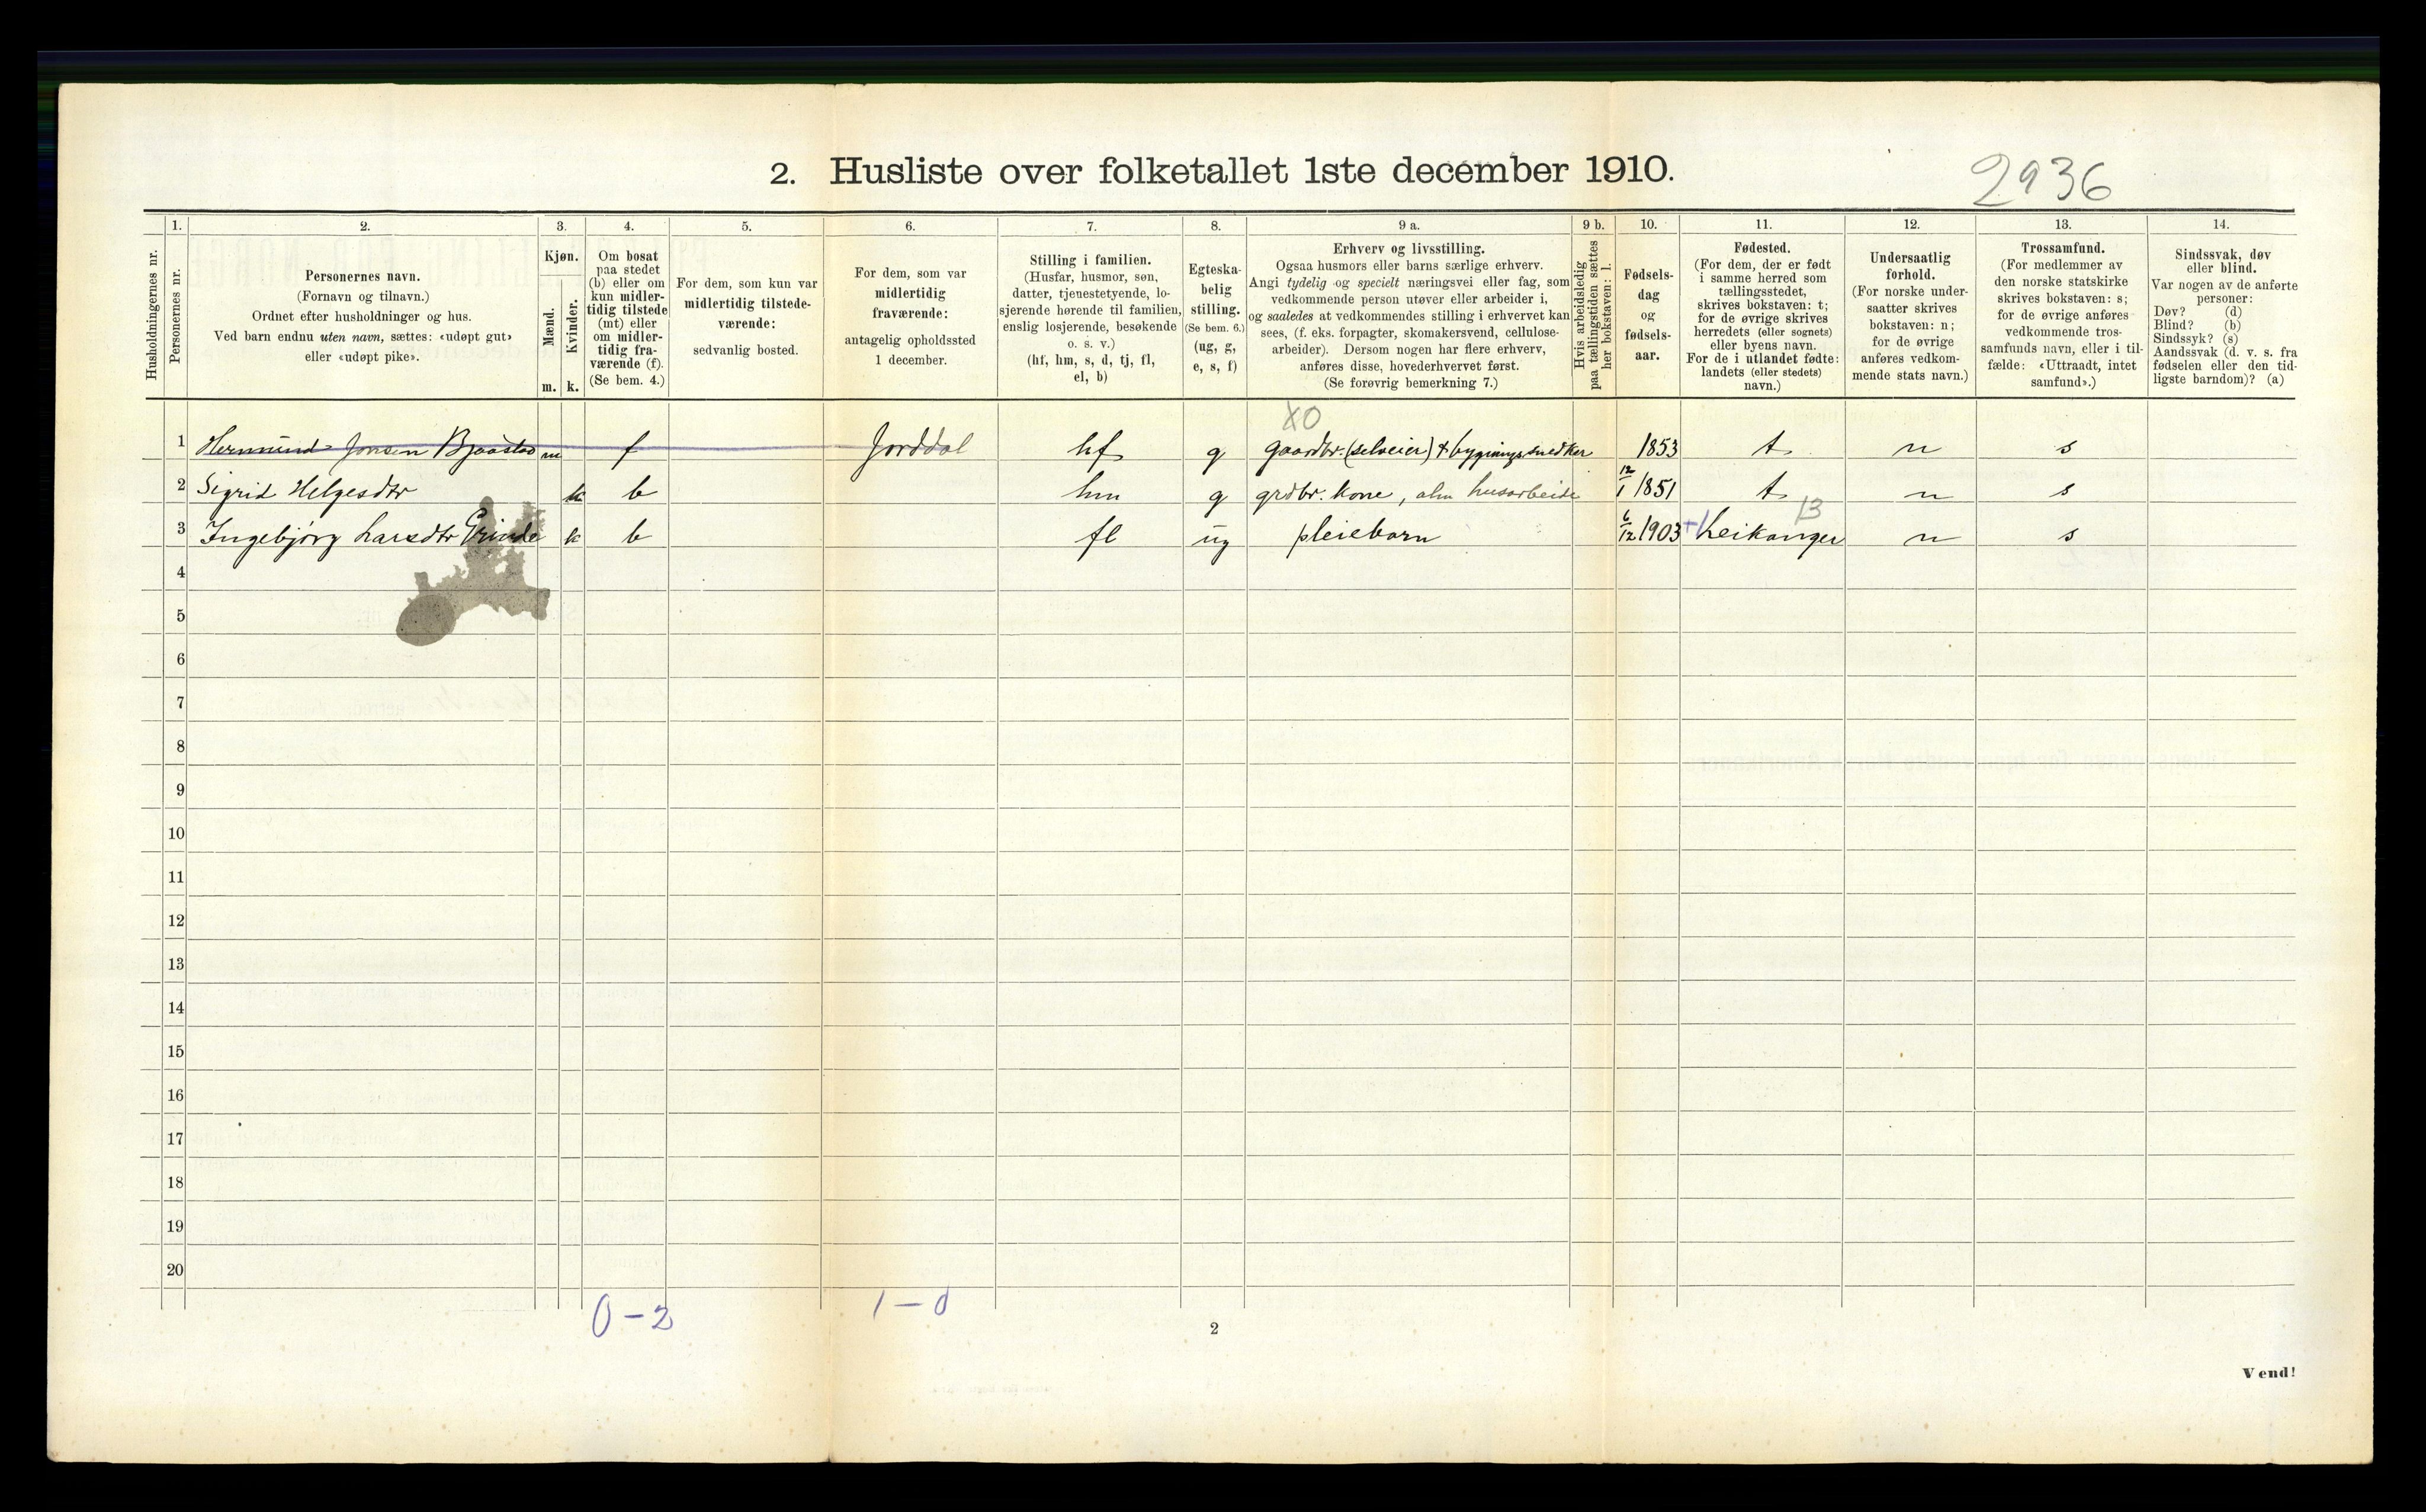 2. Husliste over folketallet 1ste december 1910.
2936
Husholdningernes nr.
1.
Personernes nr.
2.
Personernes navn.
(Fornavn og tilnavn.)
Ordnet efter husholdninger og hus.
Ved barn endnu uten navn, sættes: «udøpt gut»
eller «udøpt pike».
3.
Kjøn.
Mænd.
Kvinder.
m. k.
4.
Om bosat
paa stedet
(b) eller om
kun midler-
tidig tilstede
(mt) eller
om midler-
tidig fra-
værende (f).
(Se bem. 4.)
5.
For dem, som kun var
midlertidig tilstede-
værende:
sedvanlig bosted.
6.
For dem, som var
midlertidig
fraværende:
antagelig opholdssted
1 december.
7.
Stilling i familien.
(Husfar, husmor, søn,
datter, tjenestetyende, lo-
sjerende hørende til familien,
enslig losjerende, besøkende
o. s. v.)
(hf, hm, s, d, tj, fl,
el, b)
8.
Egteska-
belig
stilling.
(Se bem. 6.)
(ug, g,
e, s, f)
9 a.
Erhverv og livsstilling.
Ogsaa husmors eller barns særlige erhverv.
Angi tydelig og specielt næringsvei eller fag, som
vedkommende person utøver eller arbeider i,
og saaledes at vedkommendes stilling i erhvervet kan
sees, (f. eks. forpagter, skomakersvend, cellulose-
arbeider). Dersom nogen har flere erhverv,
anføres disse, hovederhvervet først.
(Se forøvrig bemerkning 7.)
9 b.
Hvis arbeidsledig
paa tællingstiden sættes
her bokstaven: l.
10.
Fødsels-
dag
og
fødsels-
aar.
11.
Fødested.
(For dem, der er født
i samme herred som
tællingsstedet,
skrives bokstaven: t;
for de øvrige skrives
herredets (eller sognets)
eller byens navn.
For de i utlandet fødte:
landets (eller stedets)
navn.)
12.
Undersaatlig
forhold.
(For norske under-
saatter skrives
bokstaven: n;
for de øvrige
anføres vedkom-
mende stats navn.)
13.
Trossamfund.
(For medlemmer av
den norske statskirke
skrives bokstaven: s;
for de øvrige anføres
vedkommende tros-
samfunds navn, eller i til-
fælde: «Uttraadt, intet
samfund».)
14.
Sindssvak, døv
eller blind.
Var nogen av de anførte
personer:
Døv? (d)
Blind? (b)
Sindssyk? (s)
Aandssvak (d. v. s. fra
fødselen eller den tid-
ligste barndom)? (a)
X0
1 Hermund Jonsen Bjaastad m f Jorddal hf g gaardbr. (selveier) & bygningssnedker 1853 t n s
2 Sigrid Helgesdtr k b hm g grdbr. kone, alm husarbeide 12/1 1851 t n s
13
3 Ingebjörg Larsdtr Grinde k b fl ug pleiebarn 6/12 1903 +1 Leikanger n s
4
5
6
7
8
9
10
11
12
13
14
15
16
17
18
19
20
0 - 2
1 - 0
2
Vend!